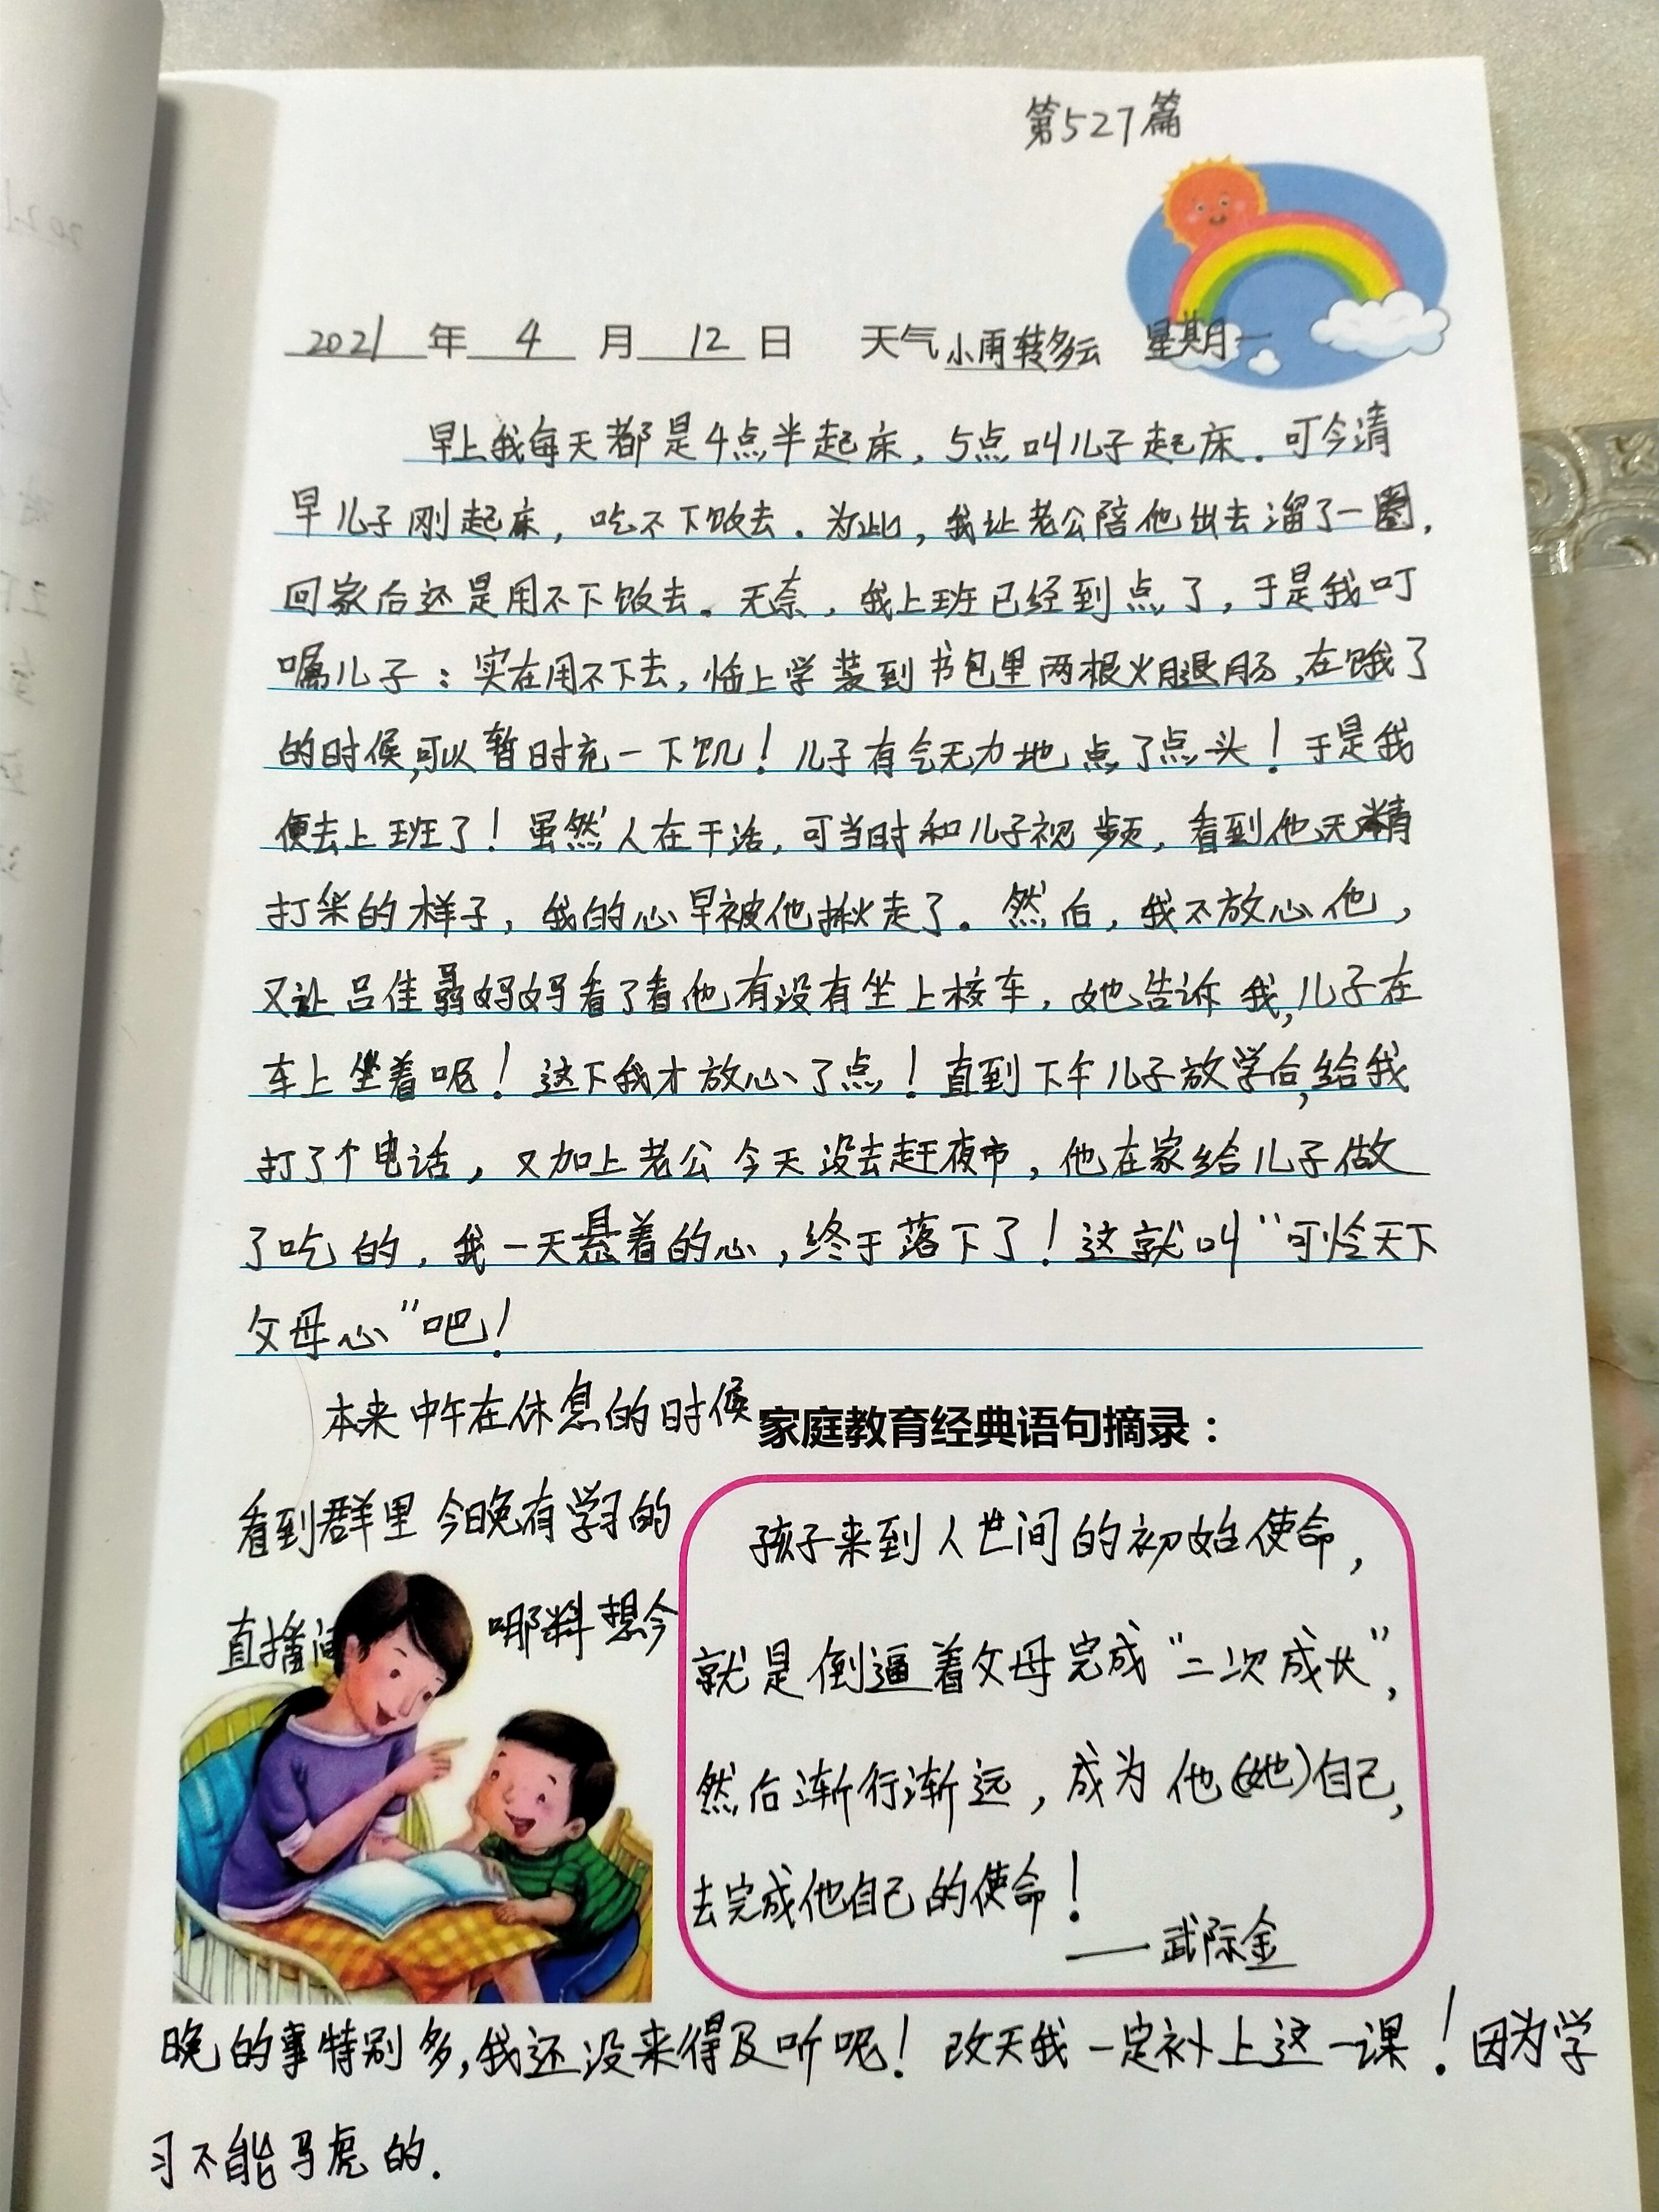 第527篇
2021年4月12日 天气小雨转多云 星期一
早上我每天都是4点半起床，5点叫儿子起床．可今清
早儿子刚起床，吃不下饭去．为此，我让老公陪他出去溜了一圈，
回家后还是用不下饭去。无奈，我上班已经到点了，于是我叮
嘱儿子：实在用不下去，临上学装到书包里两根火腿肠，在饿了
的时候，可以暂时充一下饥！儿子有气无力地点了点头！于是我
便去上班了！虽然人在干活，可当时和儿子视频，看到他无精
打采的样子，我的心早被他揪走了。然后，我不放心他，
又让吕佳骉妈妈看了看他有没有坐上校车，她告诉我，儿子在
车上坐着呢！这下我才放心了点！直到下午儿子放学后，给我
打了个电话，又加上老公今天没去赶夜市，他在家给儿子做
了吃的，我一天悬着的心，终于落下了！这就叫“可怜天下
父母心”吧！
本来中午在休息的时候
看到群里今晚有学习的
直播间 哪料想今
家庭教育经典语句摘录：
孩子来到人世间的初始使命，
就是倒逼着父母完成“二次成长”，
然后渐行渐远，成为他(她)自己，
去完成他自己的使命！
——武际金
晚的事特别多，我还没来得及听呢！改天我一定补上这一课！因为学
习不能马虎的．